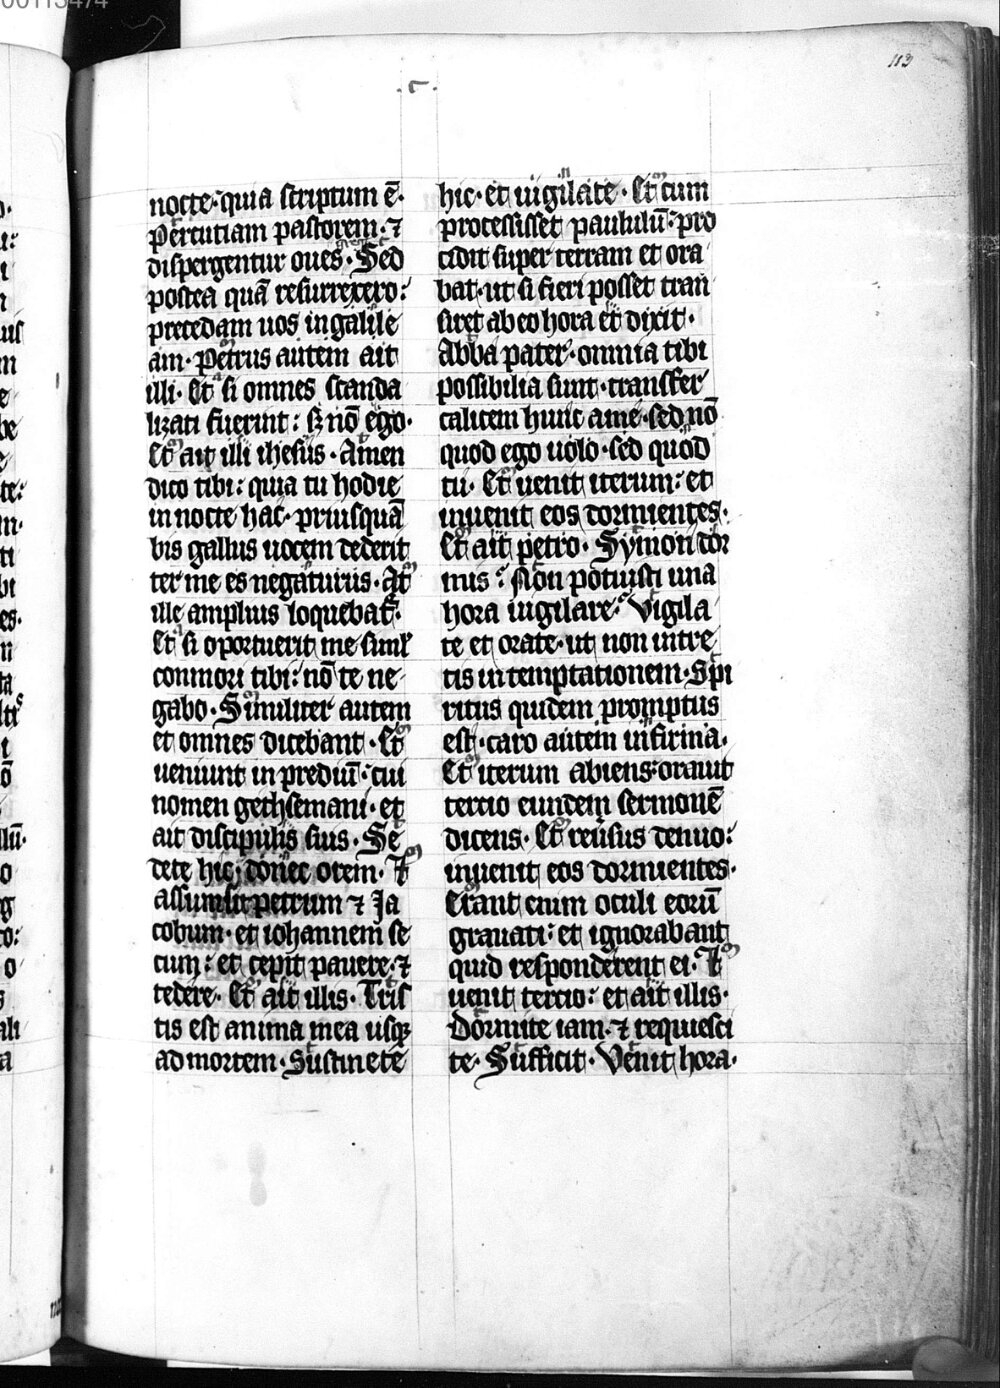 113
.c.
nocte: quia scriptum ē.
Percutiam pastorem. ⁊
dispergentur oues. Sed
postea quā resurrexero:
precedam uos in galile
am. Petrus autem ait
illi. Et si omnes scanda
lizati fuerint: sꝫ nō ego.
Et ait illi ihesus. Amen
dico tibi: quia tu hodie
in nocte hac. priusquā
bis gallus uocem dederit
ter me es negaturus. At
ille amplius loquebat᷑.
Et si oportuerit me siml̛
conmori tibi: nō te ne
gabo. Similiter autem
et omnes dicebant. Et
ueniunt in prediū: cui
nomen gethsemani. et
ait discipulis suis. Se
dete hic donec orem. ⁊
assumsit petrum ⁊ Ja
cobum. et iohannem se
cum: et cepit pauere. ⁊
tedere. Et ait illis. Tris
tis est anima mea usqꝫ
ad mortem. Sustinete
hic. et uigilate. Et cum
processisset paululū: pro
cidit super terram et ora
bat. ut si fieri posset tran
siret ab eo hora et dixit.
Abba pater. omnia tibi
possibilia sunt. transfer
calicem hunc a me. sed nō
quod ego uolo. sed quod
tu. Et uenit iterum: et
inuenit eos dormientes.
Et ait petro. Symon dor
mis? Non potuisti una
hora uigilare? Vigila
te et orate. ut non intre
tis in temptationem. Spi
ritus quidem promptus
est. caro autem infirma.
Et iterum abiens: orauit
tercio eundem sermonē
dicens. Et reuersus denuo:
inuenit eos dormientes.
Erant enim oculi eorū
grauati: et ignorabant
quid responderent ei. ⁊
uenit tercio: et ait illis.
Dormite iam. ⁊ requiesci
te. Sufficit. Venit hora.